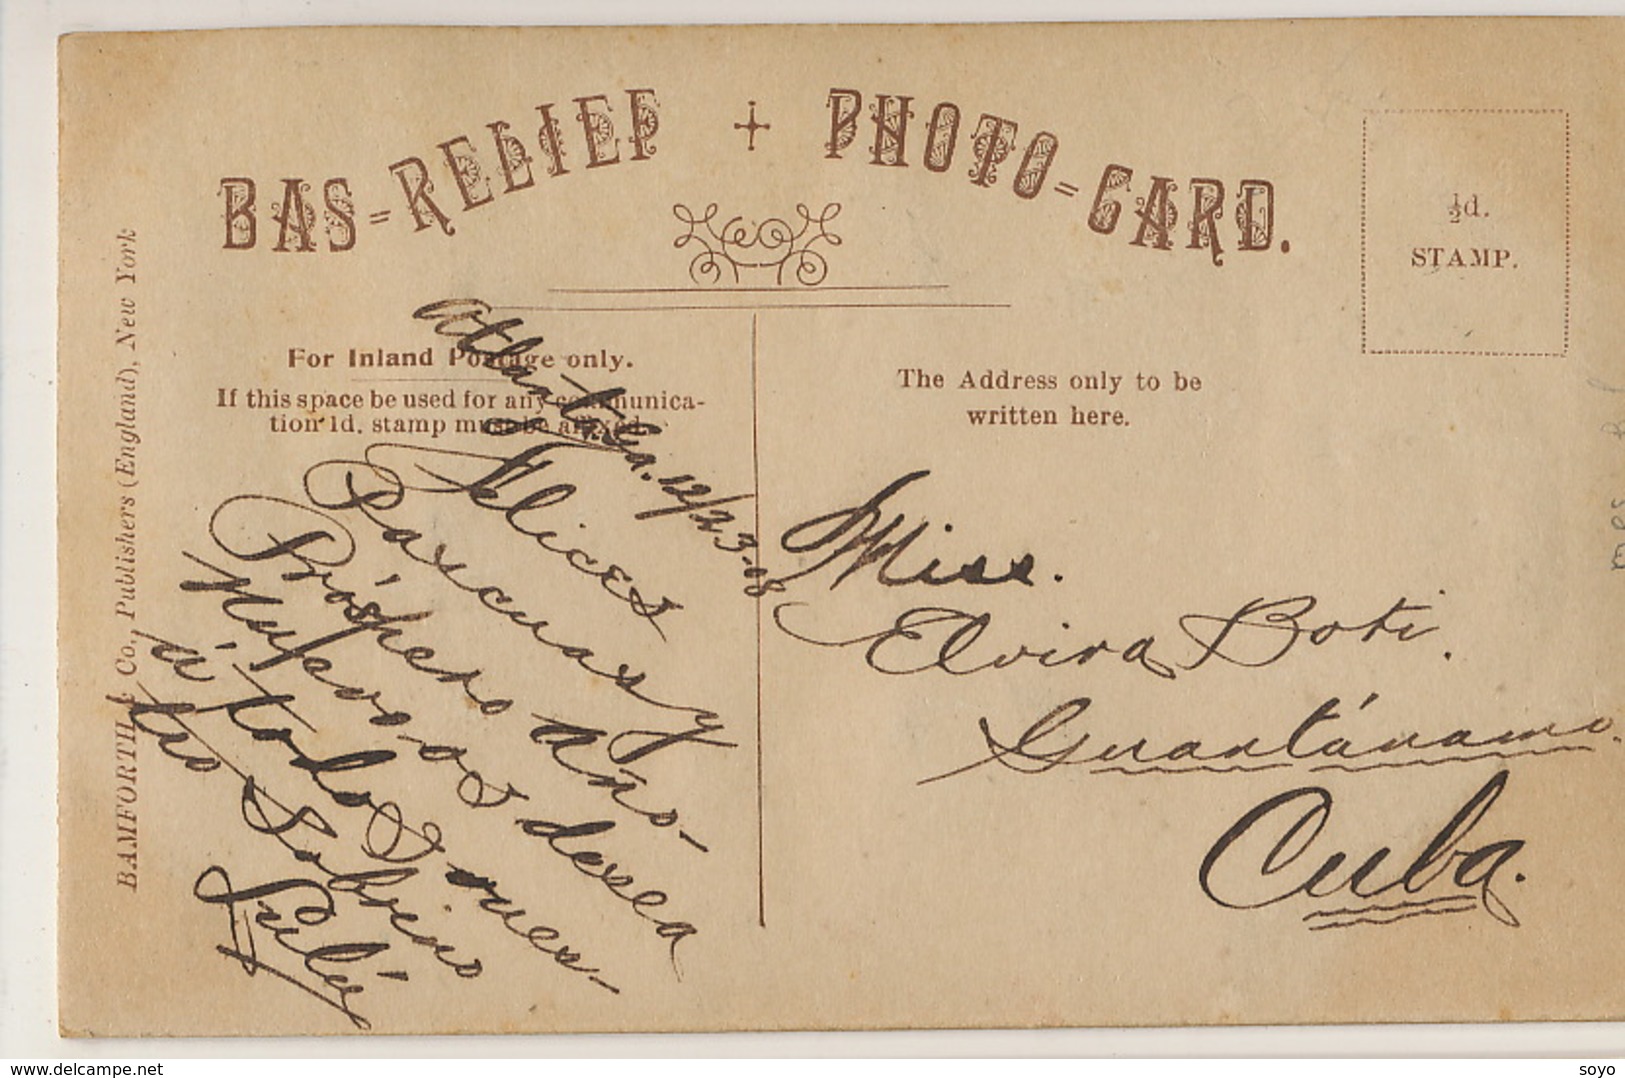 BAS-RELIEF + PHOTO-CARD.
½d.
STAMP.
BAMFORTH & Co., Publishers (England), New York
For Inland Postage only.
If this space be used for any communica-
tion 1d. stamp must be affixed.
The Address only to be
written here.
Atlanta Ga. 12/23-08
Felices
Pascuas y
Próspero Año-
Nuevo os desea
á todos vues-
tro Sobrino
Miss.
Elvira Boti.
Guantánamo.
Cuba.
www.delcampe.net
soyo